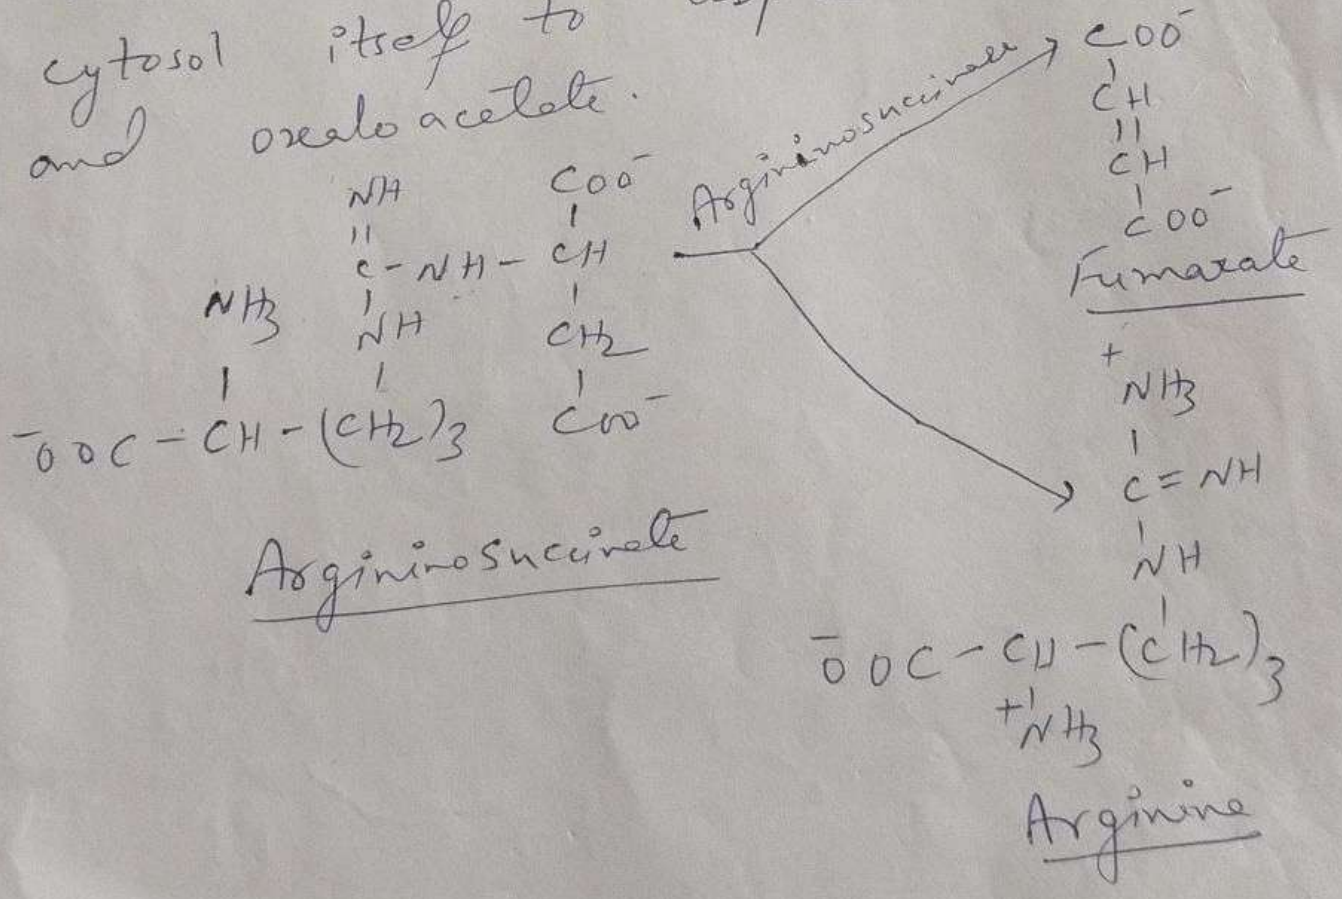 cytosol itself to
and oxaloacetate.
NH
||
C-NH-
NH3
|
NH
|
-OOC-CH-(CH2)3
COO-
|
CH
|
CH2
|
COO-
Argininosuccinate
Argininosuccinase
COO-
|
CH
||
CH
|
COO-
Fumarate
+NH3
|
C=NH
|
NH
|
-OOC-CH-(CH2)3
|
+NH3
Arginine